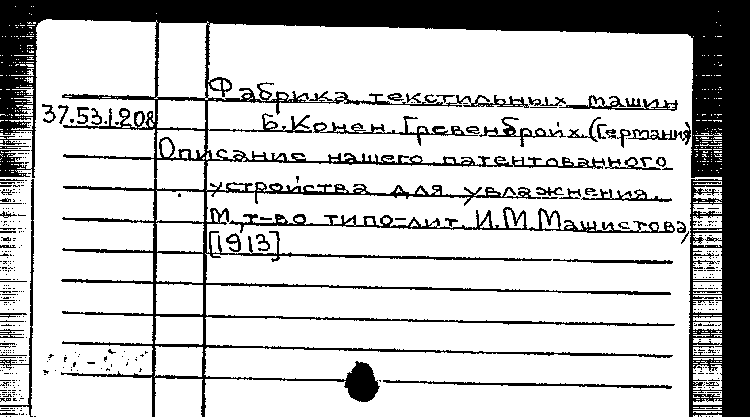 Фабрика текстильных машин
37.53.1.208
Б. Конен. Гревенбройх. (Германия)
Описание нашего патентованного
устройства для увлажнения.
М, т-во типо-лит. И.М. Машистова,
[1913].